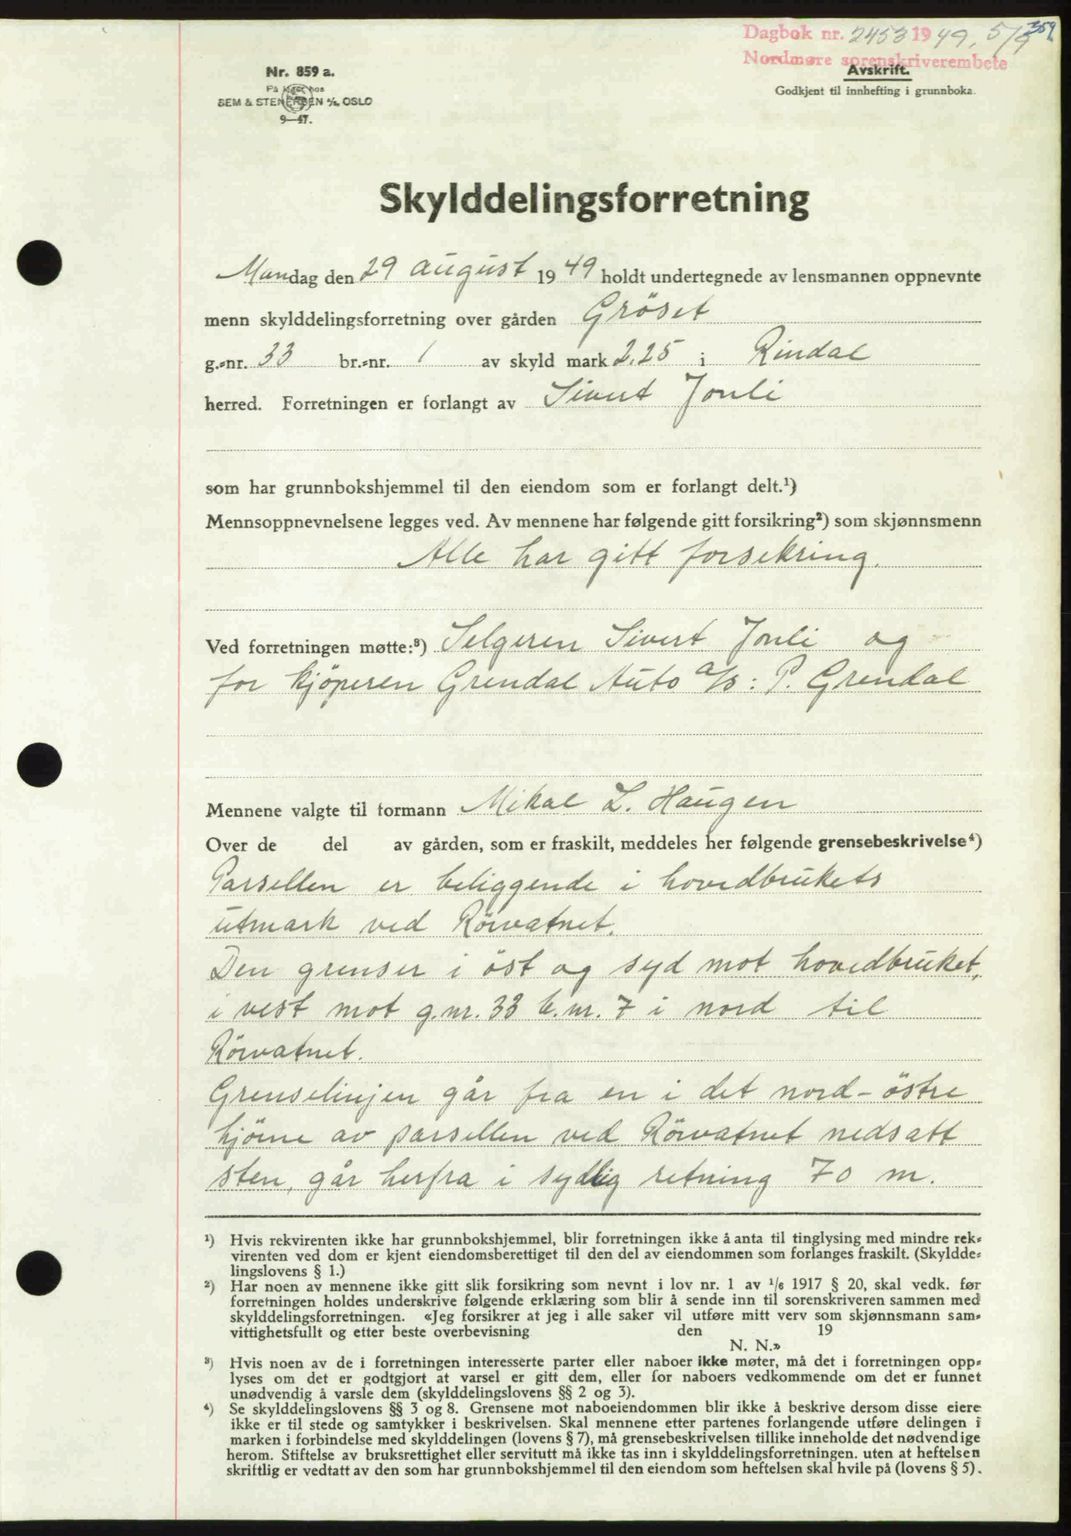 Dagbok nr. 2453 1949, 5/9 359
Nordmøre sorenskriverembete
Avskrift.
Godkjent til innhefting i grunnboka.
Nr. 859 a.
På lager hos
SEM & STENERSEN A/S, OSLO
9—47.
Skylddelingsforretning
Mandag den 29 august 1949 holdt undertegnede av lensmannen oppnevnte
menn skylddelingsforretning over gården Gröset
g.-nr. 33 br.-nr. 1 av skyld mark 2,25 i Rindal
herred. Forretningen er forlangt av Sivert Jonli
som har grunnbokshjemmel til den eiendom som er forlangt delt.¹)
Mennsoppnevnelsene legges ved. Av mennene har følgende gitt forsikring²) som skjønnsmenn
Alle har gitt forsekring.
Ved forretningen møtte:³) Selgeren Sivert Jonli og
for kjöperen Grendal Auto a/s: P. Grendal
Mennene valgte til formann Mikal L. Haugen
Over de del av gården, som er fraskilt, meddeles her følgende grensebeskrivelse⁴)
Parsellen er beliggende i hovedbrukets
utmark ved Rörvatnet.
Den grenser i öst og syd mot hovedbruket,
i vest mot g.nr. 33 b.nr. 7 i nord til
Rörvatnet.
Grenselinjen går fra en i det nord-östre
hjörne av parsellen ved Rörvatnet nedsatt
sten, går herfra i sydlig retning 70 m.
¹) Hvis rekvirenten ikke har grunnbokshjemmel, blir forretningen ikke å anta til tinglysing med mindre rek-
virenten ved dom er kjent eiendomsberettiget til den del av eiendommen som forlanges fraskilt. (Skyldde-
lingslovens § 1.)
²) Har noen av mennene ikke gitt slik forsikring som nevnt i lov nr. 1 av 1/6 1917 § 20, skal vedk. før
forretningen holdes underskrive følgende erklæring som blir å sende inn til sorenskriveren sammen med
skylddelingsforretningen. «Jeg forsikrer at jeg i alle saker vil utføre mitt verv som skjønnsmann sam-
vittighetsfullt og etter beste overbevisning den 19
N. N.»
³) Hvis noen av de i forretningen interesserte parter eller naboer ikke møter, må det i forretningen opp-
lyses om det er godtgjort at varsel er gitt dem, eller for naboers vedkommende om det er funnet
unødvendig å varsle dem (skylddelingslovens §§ 2 og 3).
⁴) Se skylddelingslovens §§ 3 og 8. Grensene mot naboeiendommen blir ikke å beskrive dersom disse eiere
ikke er til stede og samtykker i beskrivelsen. Skal mennene etter partenes forlangende utføre delingen i
marken i forbindelse med skylddelingen (lovens § 7), må grensebeskrivelsen tillike inneholde det nødvendige
herom. Stiftelse av bruksrettighet eller servitutt må ikke tas inn i skylddelingsforretningen, uten at heftelsen
skriftlig er vedtatt av den som har grunnbokshjemmel til den eiendom som heftelsen skal hvile på (lovens § 5).